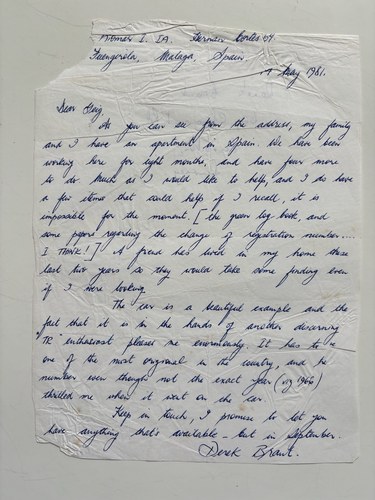 I. IA. Cortes 49
Fuengirola, Malaga, Spain
May 1981.
Dear
As you can see from the address, my family
and I have an apartment in Spain. We have been
working here for eight months, and have four more
to do. Much as I would like to help, and I do have
a few items that would help if I recall, it is
impossible for the moment. [the green log book, and
some papers regarding the change of registration number....
I THINK!] A friend has lived in my home these
last two years so they would take some finding even
if I were looking.
The car is a beautiful example and the
fact that it is in the hands of another discerning
TR enthusiast pleases me enormously. It has to be
one of the most original in the country, and the
number even though not the exact year (eg 1966)
thrilled me when it went on the car.
Keep in touch, I promise to let you
have anything that's available - but in September.
Derek